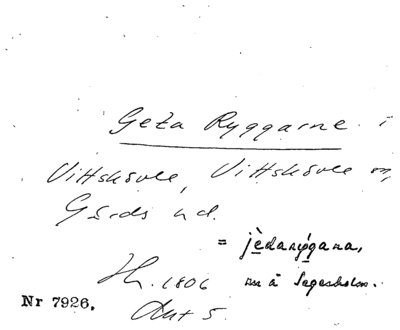 Geta Ryggarne i
Vittskövle, Vittskövle sn,
Gärds hd.
= jèdaryǵana,
Hr. 1806
nu å Segesholm.
Nr 7926.
Ant 5.